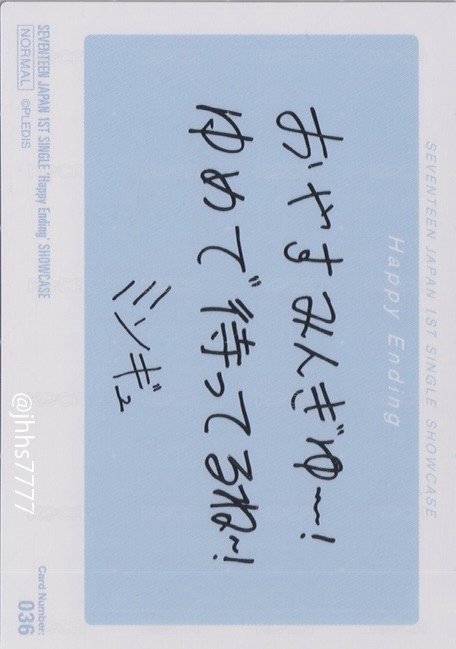 SEVENTEEN JAPAN 1ST SINGLE SHOWCASE
Happy Ending
おやすみんぎゅ〜!
ゆめで待ってるね〜!
ミンギュ
SEVENTEEN JAPAN 1ST SINGLE 'Happy Ending' SHOWCASE
NORMAL ©PLEDIS
Card Number:
036
@jhhs7777